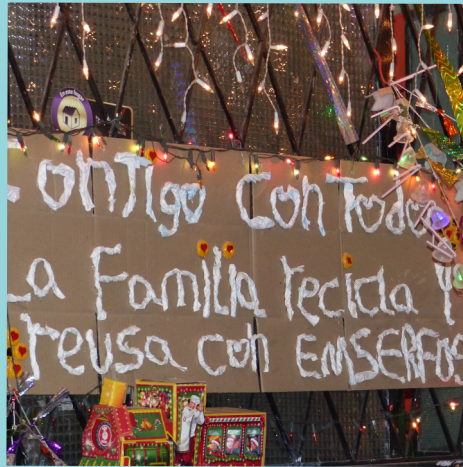 Contigo Con Todo
La Familia recicla Y
reusa con EMSERFUS